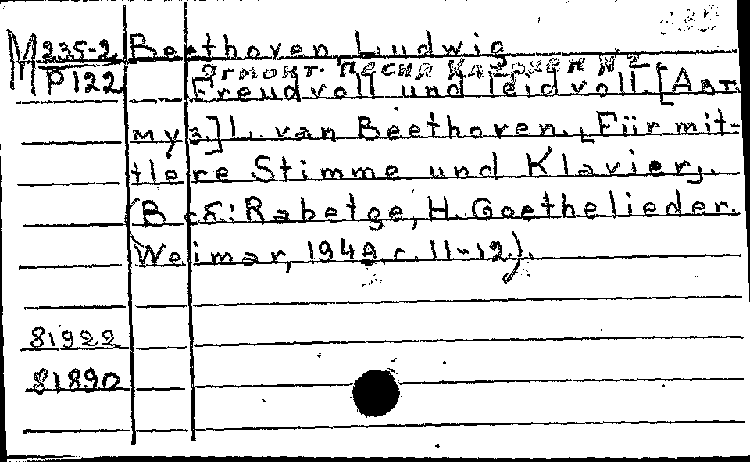 M 235-2 Beethoven Ludwig
P122 Эгмонт. Песня Клерхен № 2
Freudvoll und leidvoll. [Авт.
муз.] L. van Beethoven. [Für mit-
tlere Stimme und Klavier].
(В сб.: Rabetge, H. Goethelieder.
Weimar, 1949 с. 11-12).
81922
81890